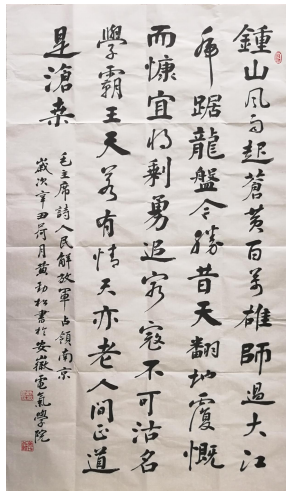 鍾山風雨起蒼黄百萬雄師過大江
虎踞龍盤今勝昔天翻地覆慨
而慷宜将剩勇追窮寇不可沽名
學霸王天若有情天亦老人間正道
是滄桑
毛主席詩人民解放軍占領南京
嵗次辛丑荷月黄勁松書於安徽電氣學院